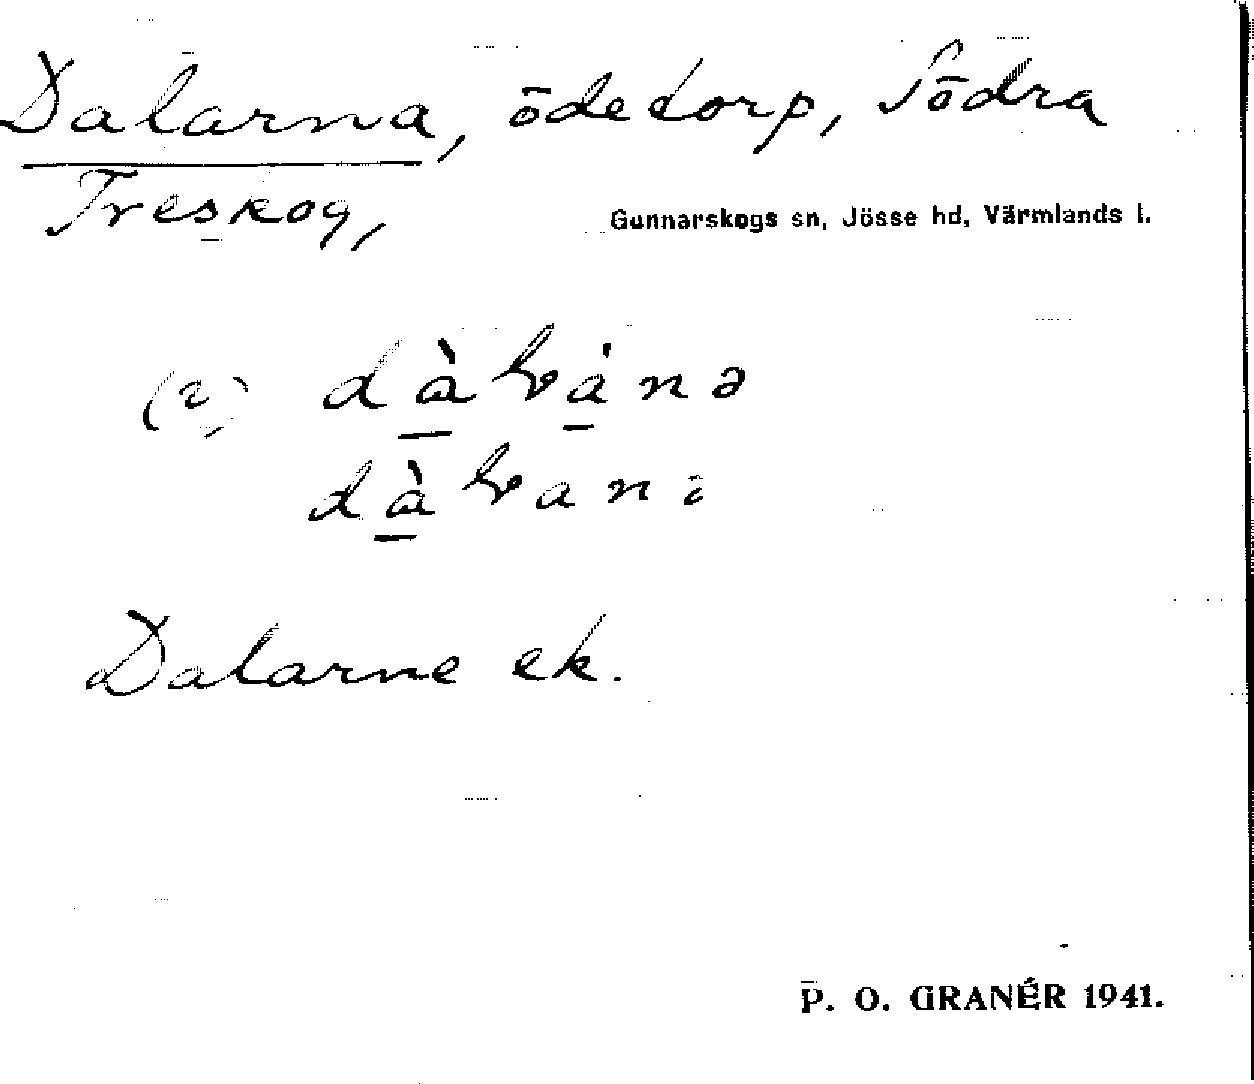 Dalarna, ödetorp, Södra
Treskog,
Gunnarskogs sn, Jösse hd, Värmlands l.
Dalarne ek.
P. O. GRANÉR 1941.